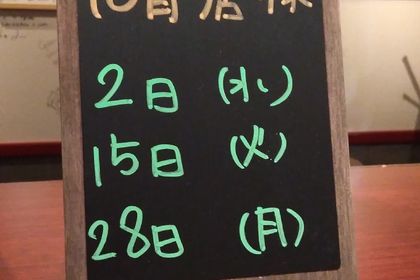 10月店休
2日 (水)
15日 (火)
28日 (月)